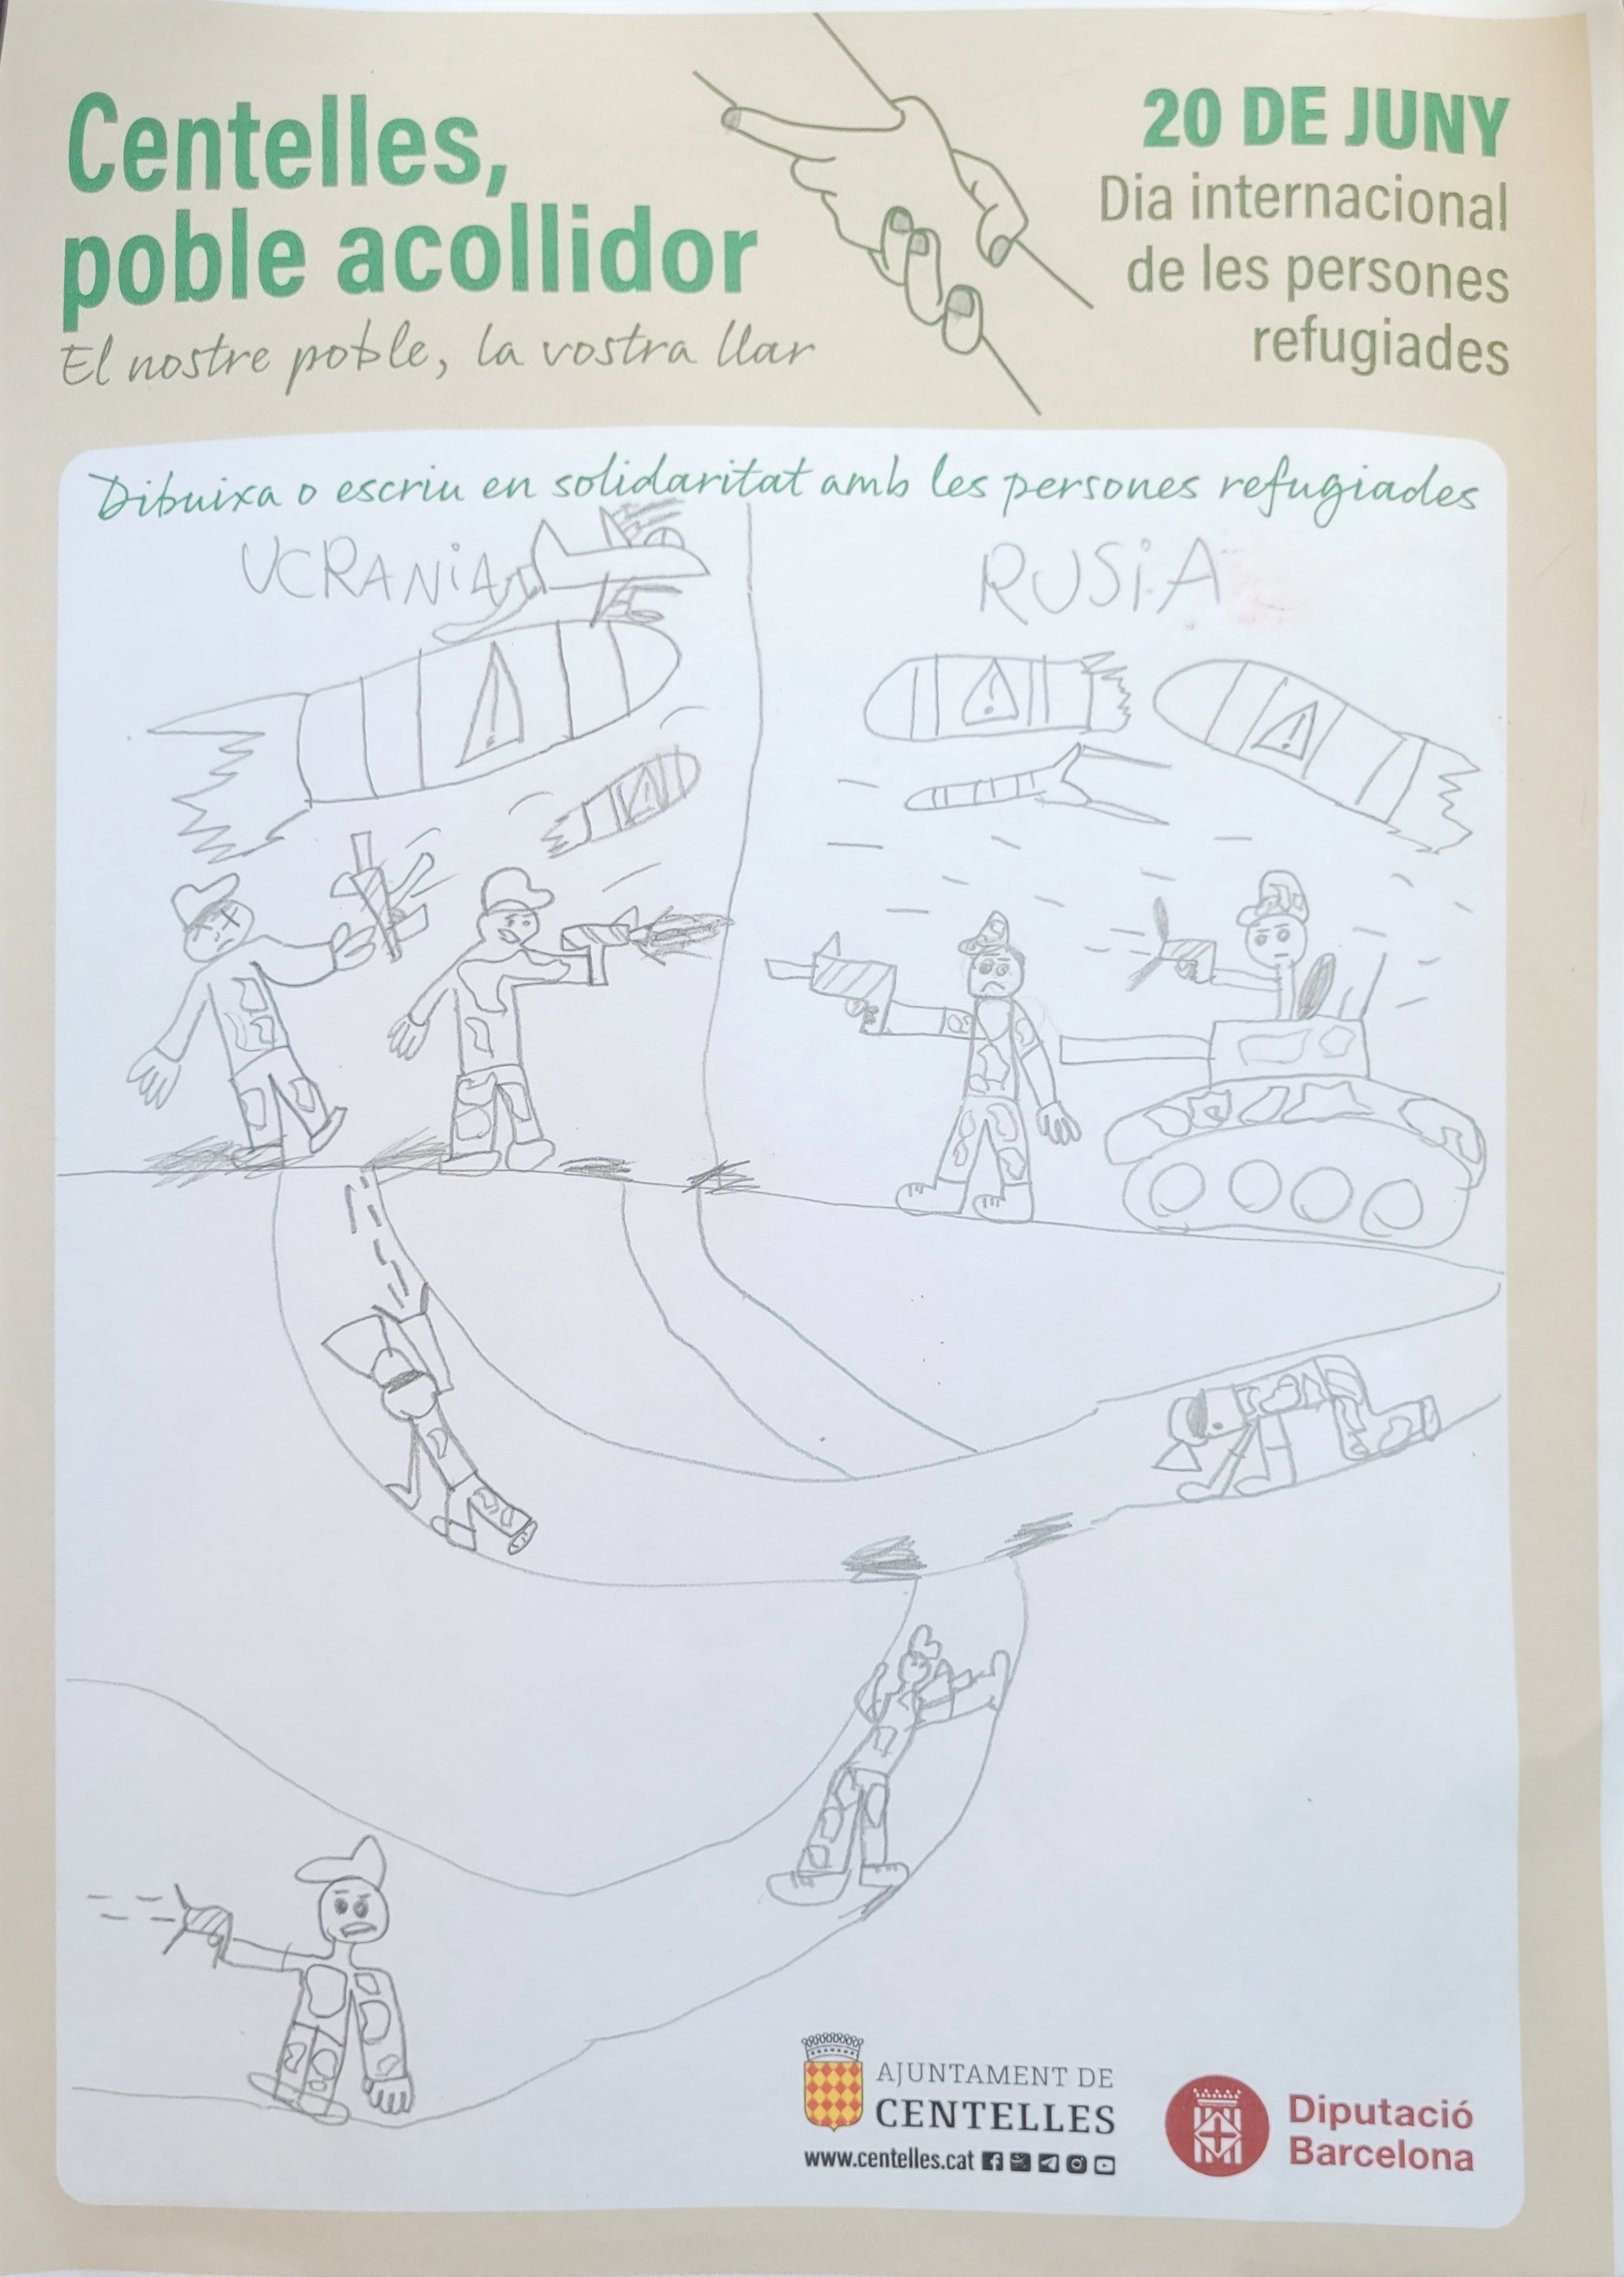 Centelles,
poble acollidor
El nostre poble, la vostra llar
20 DE JUNY
Dia internacional
de les persones
refugiades
Dibuixa o escriu en solidaritat amb les persones refugiades
UCRANiA
RUSiA
AJUNTAMENT DE
CENTELLES
www.centelles.cat
Diputació
Barcelona